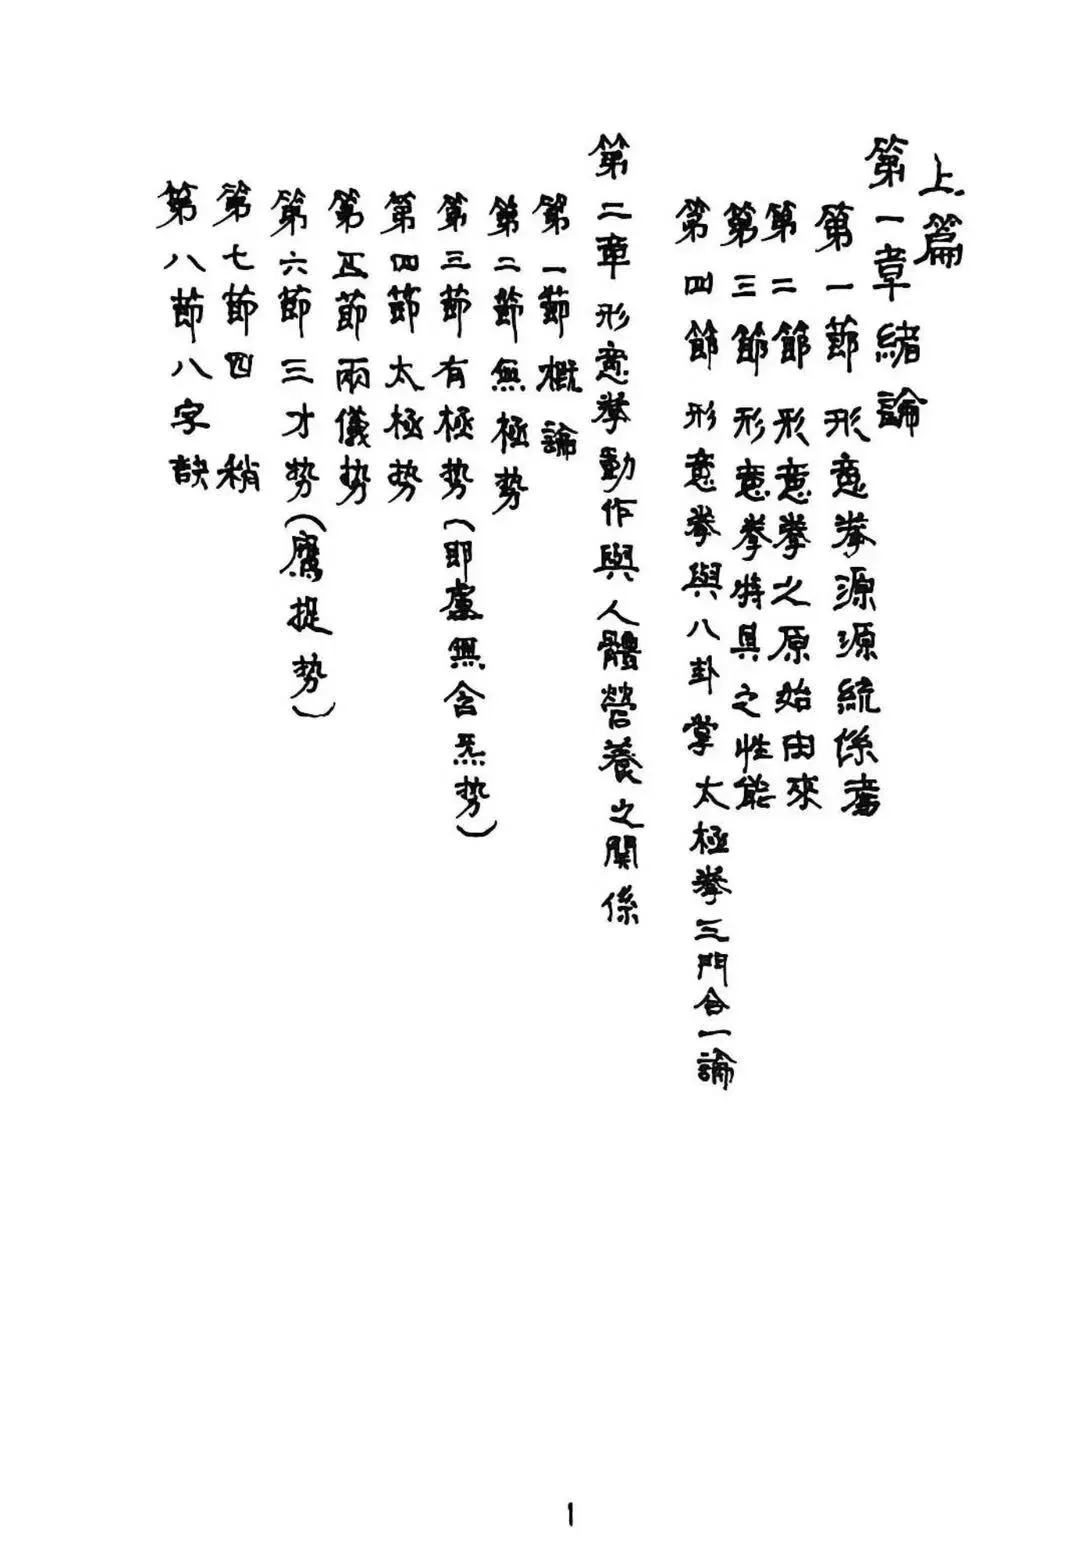 上篇
第一章緒論
第一節形意拳源源統係考
第二節形意拳之原始由來
第三節形意拳特具之性能
第四節形意拳與八卦掌太極拳三門合一論
第二章形意拳動作與人體營養之關係
第一節概論
第二節無極势
第三節有極势(即虛無含炁势)
第四節太極势
第五節兩儀势
第六節三才势(鷹捉势)
第七節四稍
第八節八字訣
1